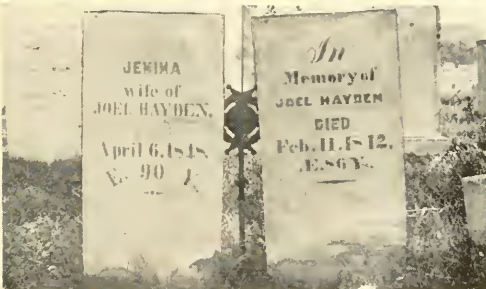 JEMIMA
wife of
JOEL HAYDEN,
April 6, 1848,
Æ. 90 Y.
In
Memory of
JOEL HAYDEN
DIED
Feb. 11, 1842,
Æ. 86 Y's.